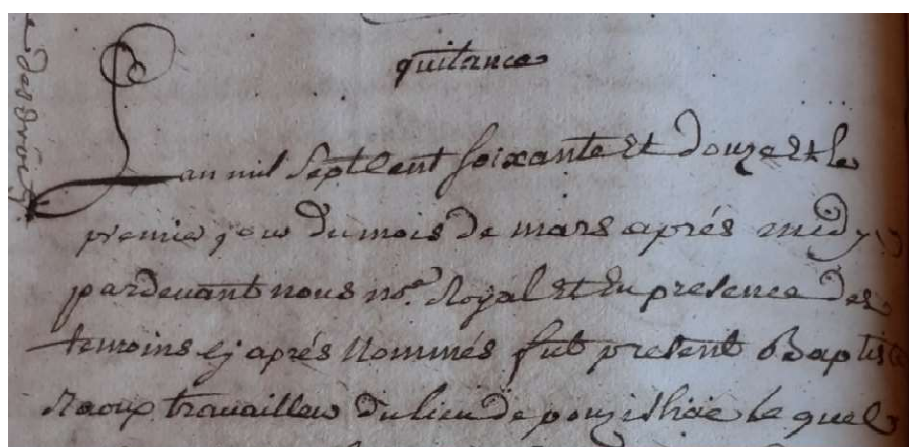 quitance
Lan mil sept Cent soixante et douze et le
premier jour du mois de mars aprés midy
pardevant nous no.re Royal et En presence des
temoins cy aprés Nommés fut present Baptiste
Raoux travailleur du lieu de pouzilhac le quel